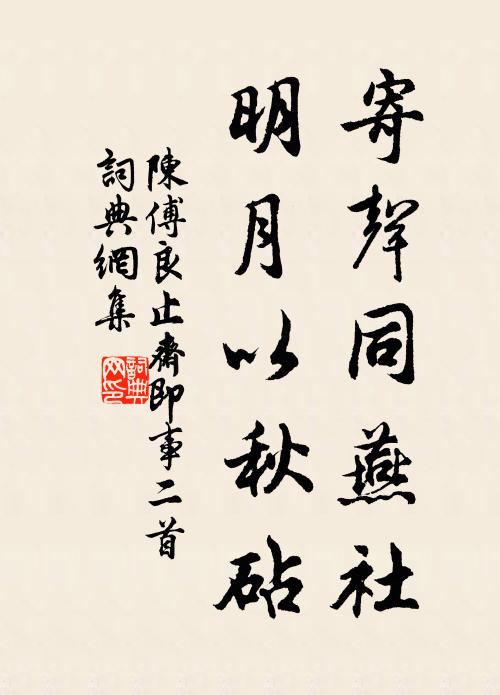 寄聲同燕社
明月以秋砧
陳傅良止齋即事二首
詞典網集
詞典網印